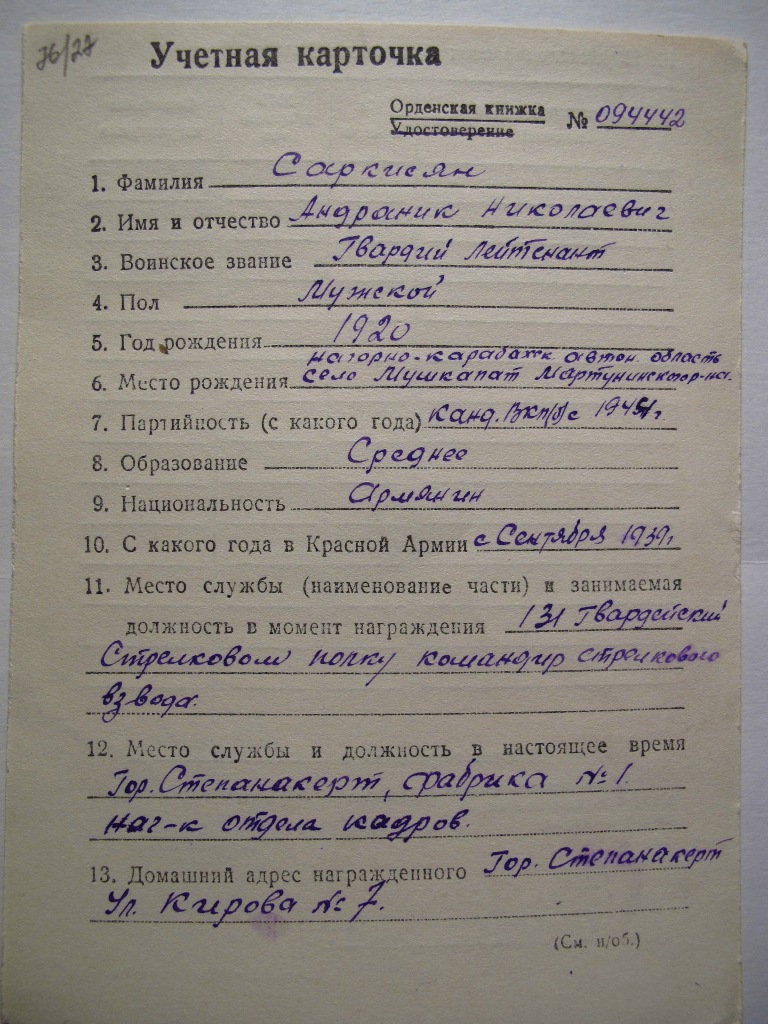 76/27
Учетная карточка
Орденская книжка
Удостоверение
№ 094442
1. Фамилия Саркисян
2. Имя и отчество Андраник Николаевич
3. Воинское звание Гвардий Лейтенант
4. Пол Мужской
5. Год рождения 1920
Нагорно-Карабахск автон. область
6. Место рождения село Мушкапат Мартунинск-ор-на.
7. Партийность (с какого года) канд. Вкп(б) с 1944 г
8. Образование Среднее
9. Национальность Армянин
10. С какого года в Красной Армии с Сентября 1939 г
11. Место службы (наименование части) и занимаемая
должность в момент награждения 131 Гвардейский
Стрелковом полку командир стрелкового
взвода.
12. Место службы и должность в настоящее время
Гор. Степанакерт, фабрика № 1.
нач-к отдела кадров.
13. Домашний адрес награжденного Гор. Степанакерт
Ул. Кирова № 7.
(См. н/об.)